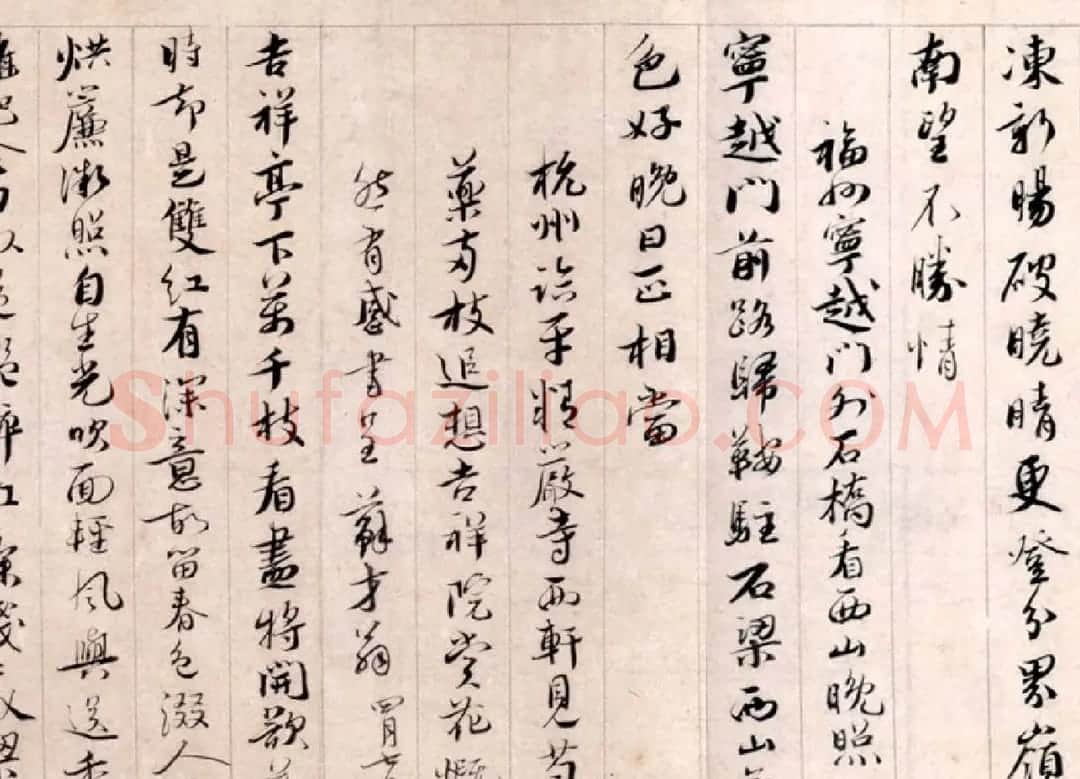 凍新暘破曉晴更登分界嶺
南望不勝情
福州寧越門外石橋看西山晚照
寧越門前路歸鞍駐石梁西山
色好晚日正相當
杭州臨平精嚴寺西軒見芍
藥兩枝追想吉祥院賞花慨
然有感書呈蘇才翁 四月
吉祥亭下萬千枝看盡將開欲
時却是雙紅有深意故留春色綴人
烘簾微照自生光吹面輕風與送香
Shufaziliao.COM